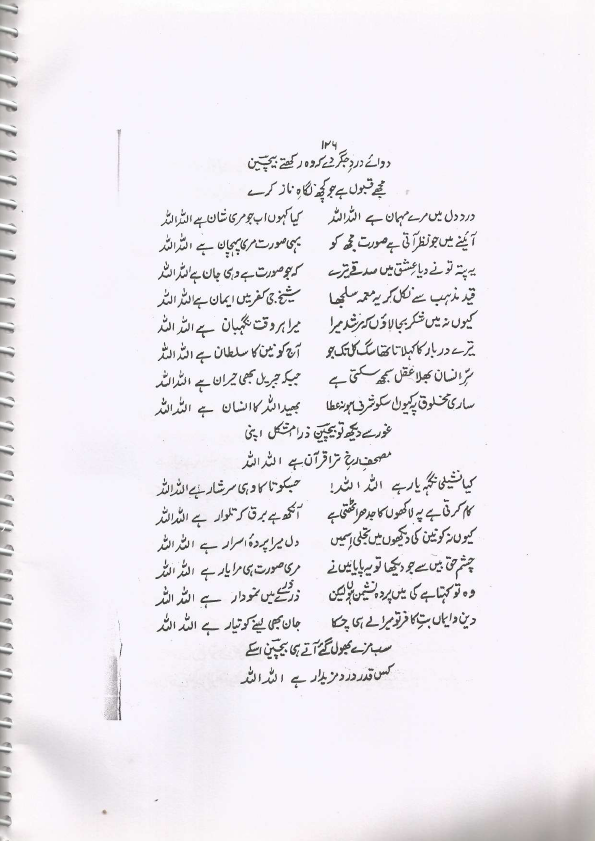 ۱۲۶
دوائے دردِ جگر دے کہ وہ رکھتے بیچین
مجھے قبول ہے جو کچھ نگاہِ ناز کرے
درد دل میں مرے مہمان ہے اللہ اللہ کیا کہوں اب جو مری شان ہے اللہ اللہ
آئینے میں جو نظر آتی ہے صورت مجھ کو یہی صورت مری پہچان ہے اللہ اللہ
یہ پتہ تونے دیا عشق میں صدقے ترے کہ جو صورت ہے وہی جان ہے اللہ اللہ
قید مذہب سے نکل کر یہ معمہ سلجھا شیخ جی کفر میں ایمان ہے اللہ اللہ
کیوں نہ میں شکر بجا لاؤں کہ مرشد میرا میرا ہر وقت نگہبان ہے اللہ اللہ
تیرے دربار کا کہلاتا تھا سگ کل تک جو آج کونین کا سلطان ہے اللہ اللہ
سرِّ انسان بھلا عقل سمجھ سکتی ہے جبکہ جبریل بھی حیران ہے اللہ اللہ
ساری مخلوق پر کیوں اسکو شرف ہو نہ عطا بھید اللہ کا انسان ہے اللہ اللہ
غور سے دیکھ تو بیچین ذرا شکل اپنی
مصحفِ رخ ترا قرآن ہے اللہ اللہ
کیا نشیلی نگہِ یار ہے اللہ اللہ! جسکو تاکا وہی سرشار ہے اللہ اللہ
کام کرتی ہے یہ لاکھوں کا جدھر اٹھتی ہے آنکھ ہے برق کہ تلوار ہے اللہ اللہ
کیوں نہ کونین کی دیکھوں میں تجلی اسمیں دل میرا پردۂ اسرار ہے اللہ اللہ
چشم حق بیں سے جو دیکھا تو یہ پایا میں نے مری صورت ہی مرا یار ہے اللہ اللہ
وہ تو کہتا ہے کی میں پردہ نشین ہوں لیکن ذرّے ذرّے میں نمودار ہے اللہ اللہ
دین و ایماں بت کافر تو میرا لے ہی چکا جان بھی لینے کو تیار ہے اللہ اللہ
سب مزے بھول گئے آتے ہی بیچین اسکے
کس قدر درد مزیدار ہے اللہ اللہ